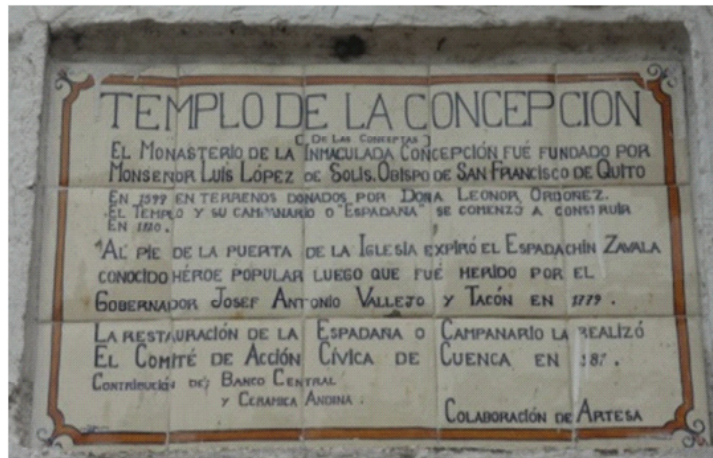 TEMPLO DE LA CONCEPCION
[ DE LAS CONCEPTAS ]
EL MONASTERIO DE LA INMACULADA CONCEPCIÓN FUÉ FUNDADO POR
MONSEÑOR LUÍS LÓPEZ DE SOLIS. OBISPO DE SAN FRANCISCO DE QUITO
EN 1599 EN TERRENOS DONADOS POR DOÑA LEONOR ORDOÑEZ.
EL TEMPLO Y SU CAMPANARIO O "ESPADAÑA" SE COMENZÓ A CONSTRUIR
EN
AL PIE DE LA PUERTA DE LA IGLESIA EXPIRÓ EL ESPADACHÍN ZAVALA
CONOCIDO HÉROE POPULAR LUEGO QUE FUÉ HERIDO POR EL
GOBERNADOR JOSEF ANTONIO VALLEJO Y TACÓN EN 1779.
LA RESTAURACIÓN DE LA ESPADAÑA O CAMPANARIO LA REALIZÓ
EL COMITÉ DE ACCIÓN CÍVICA DE CUENCA EN
CONTRIBUCIÓN DE: BANCO CENTRAL
Y CERAMICA ANDINA.
COLABORACIÓN DE ARTESA